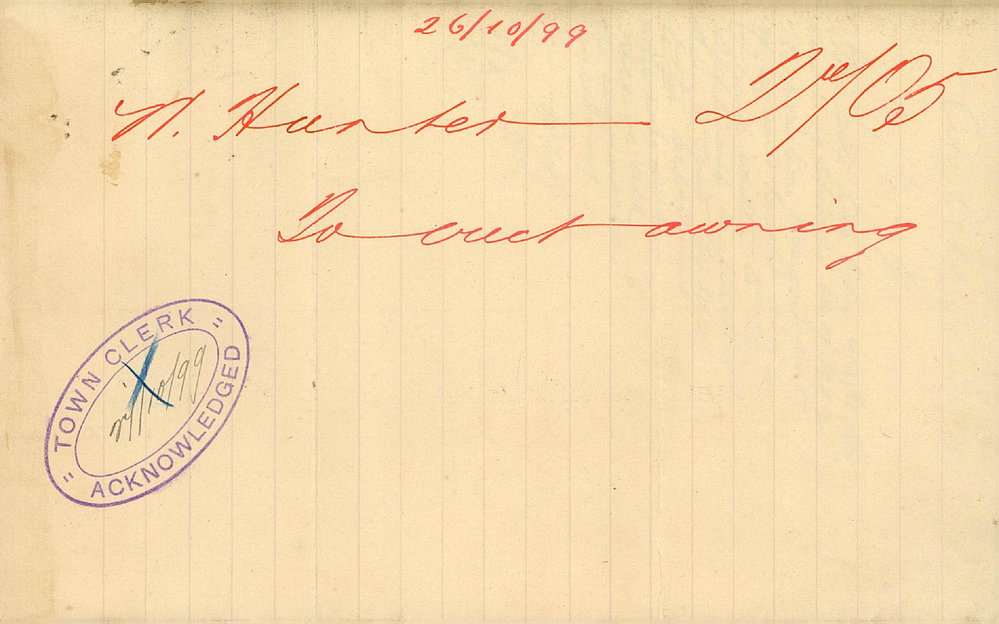 26/10/99
W. Hunter
To erect awning
TOWN CLERK
27/10/99
ACKNOWLEDGED